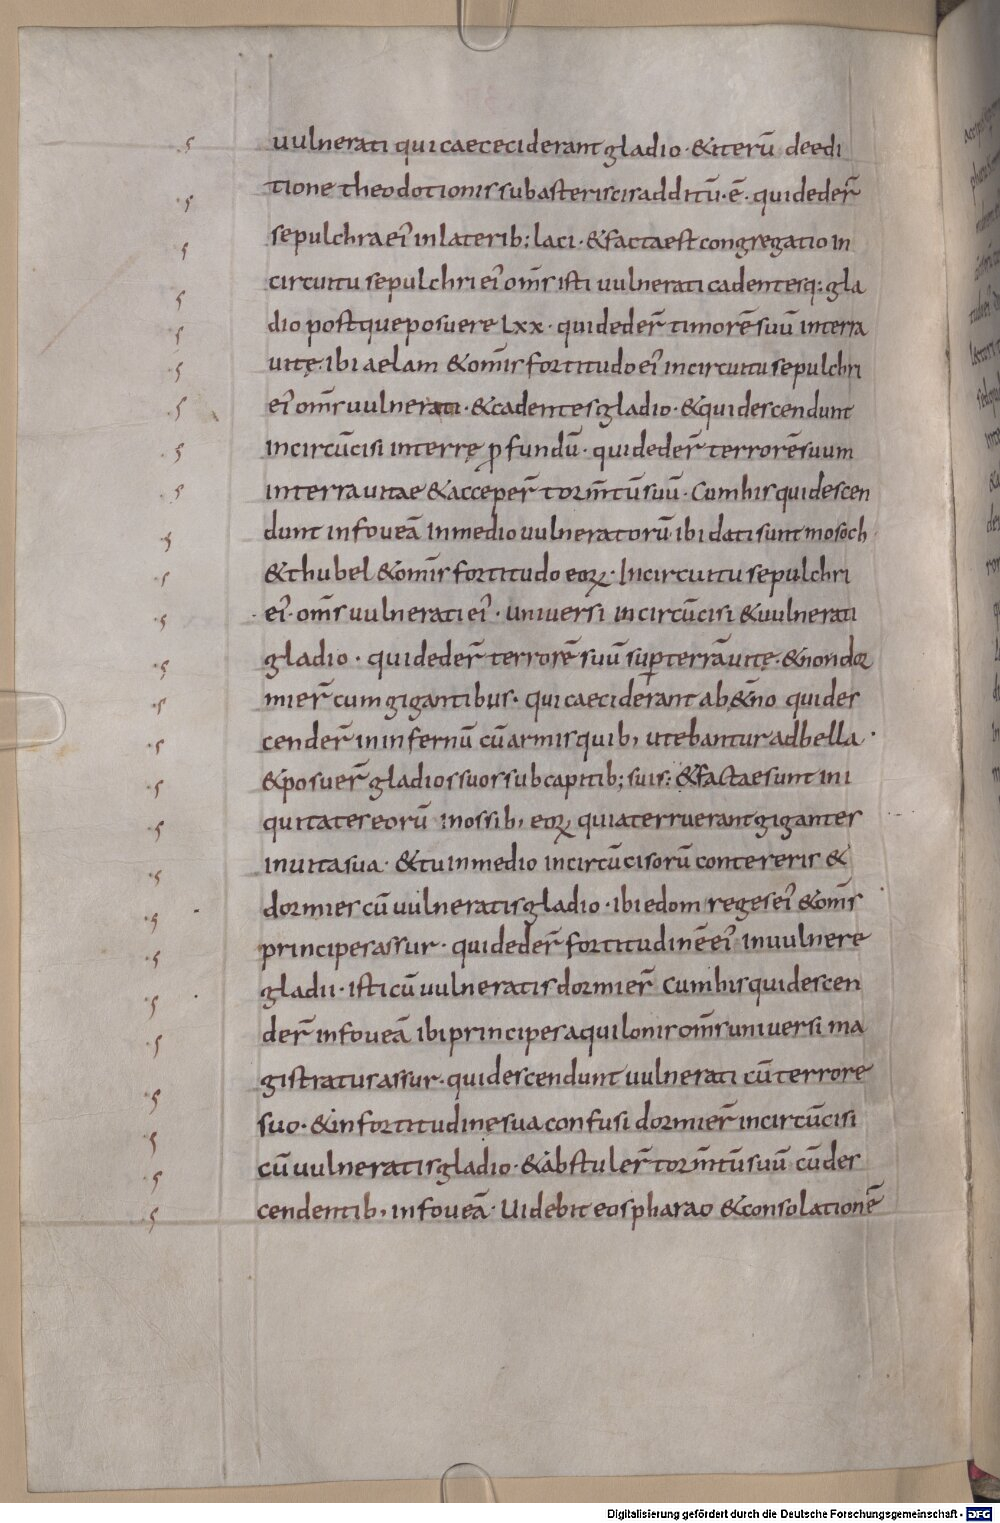 uulnerati qui caececiderant gladio · & iterū de edi
tione theodotionis sub asteriscis additū · ē · qui dederr̄
sepulchra ei᾽ in laterib; laci · & facta est congregatio in
circuitu sepulchri ei᾽ om̄s isti uulnerati cadentesq: gla
dio postque posuere Lxx · qui dederr̄ timorē suū in terra
uitę · ibi aelam & om̄is fortitudo ei᾽ in circuitu sepulchri
ei᾽ om̄s uulnerati · & cadentes gladio · & qui descendunt
incircūcisi in terrę ꝓfundū · qui dederr̄ terrorē suum
in terra uitae & acceperr̄ torm̄tū suū · Cum his qui descen
dunt in foueā in medio uulneratorū ibi dati sunt mosoch
& thubel & om̄is fortitudo eoꝝ · Incircuitu sepulchri
ei᾽ · om̄s uulnerati ei᾽ · uniuersi incircūcisi & uulnerati
gladio · qui dederr̄ terrorē suū suꝑ terrā uitę · & non dor
mierr̄ cum gigantibus · qui caeciderant ab &̄no qui des
cenderr̄ in infernū cū armis quib, utebantur ad bella ·
& posuerr̄ gladios suos sub capitib; suis: & factae sunt ini
quitates eorū in ossib, eoꝝ quia terruerant gigantes
in uita sua · & tu in medio incircūcisorū contereris &
dormies cū uulneratis gladio · ibi edom reges ei᾽ & om̄s
principes assur · qui dederr̄ fortitudinē ei᾽ in uulnere
gladii · isti cū uulneratis dormierr̄ Cum his qui descen
derr̄ in foueā ibi principes aquilonis om̄s uniuersi ma
gistratus assur · qui descendunt uulnerati cū terrore
suo · & in fortitudine sua confusi dormierr̄ incircūcisi
cū uulneratis gladio · & abstulerr̄ torm̄tū suū cū des
cendentib, in foueā · Uidebit eos pharao & consolationē
Digitalisierung gefördert durch die Deutsche Forschungsgemeinschaft - DFG